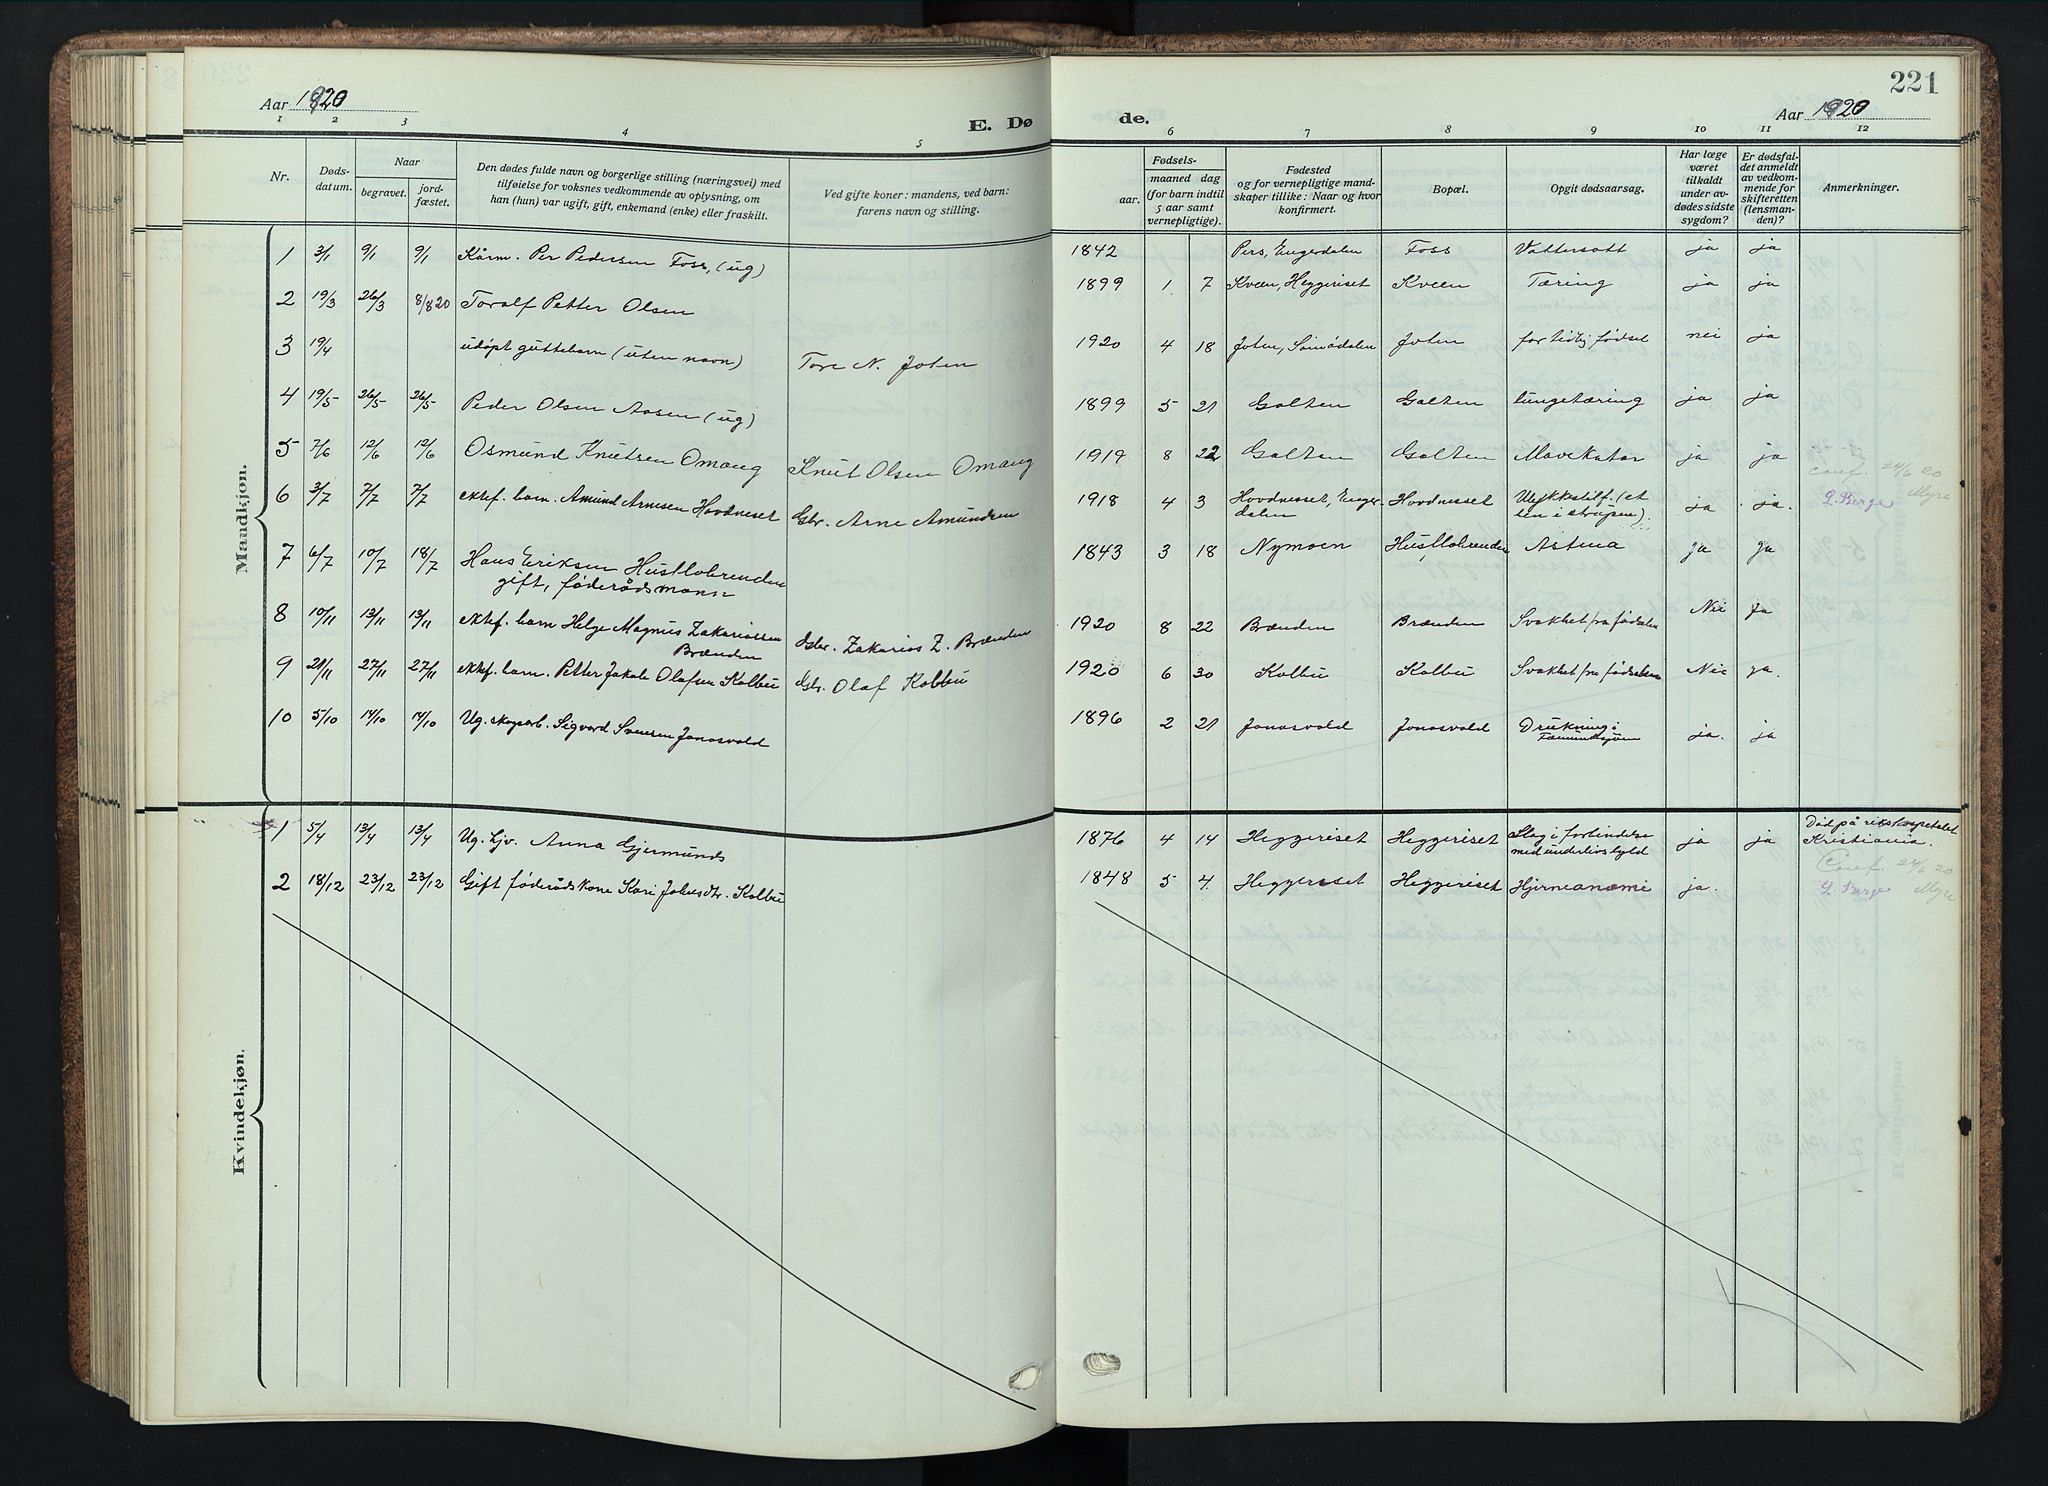 221
Aar 1920
E. Dø
de.
Aar 1920
1 2 3 4 5 6 7 8 9 10 11 12
Nr.
Døds-
datum.
Naar
begravet.
jord-
fæstet.
Den dødes fulde navn og borgerlige stilling (næringsvei) med
tilføielse for voksnes vedkommende av oplysning, om
han (hun) var ugift, gift, enkemand (enke) eller fraskilt.
Ved gifte koner: mandens, ved barn:
farens navn og stilling.
Fødsels-
aar.
maaned dag
(for barn indtil
5 aar samt
vernepligtige).
Fødested
og for vernepligtige mand-
skaper tillike: Naar og hvor
konfirmert.
Bopæl.
Opgit dødsaarsag.
Har læge
været
tilkaldt
under av-
dødes sidste
sygdom?
Er dødsfal-
det anmeldt
av vedkom-
mende for
skifteretten
(lensman-
den)?
Anmerkninger.
Mandkjøn.
1 3/1 9/1 9/1 Kårm. Per Pedersen Foss, (ug) 1842 Pers, Engerdalen Foss Vattersott ja ja
2 19/3 26/3 8/8 20 Toralf Petter Olsen 1899 1 7 Kveen, Heggeriset Kveen Tæring ja ja
3 19/4 udøpt guttebarn (uten navn) Tore N. Joten 1920 4 18 Joten, Sømådalen Joten for tidlig fødsel nei ja
4 19/5 26/5 26/5 Peder Olsen Aasen (ug) 1899 5 21 Galten Galten lungetæring ja ja
5 7/6 12/6 12/6 Osmund Knutsen Omang Knut Olsen Omang 1919 8 22 Galten Galten Mavekatar ja ja
Conf. 24/6 20
6 3/7 7/7 7/7 ektef. barn. Amund Arnesen Hovdneset Gbr. Arne Amundsen 1918 4 3 Hovdnesset, Enger-
dalen Hovdnesset Ulykkestilf. (et
ben i strupen). ja ja. L. Berge Myre
7 6/7 10/7 18/7 Hans Eriksen Hustlohrenden
gift, føderådsmann 1843 3 18 Nymoen Hustlohrenden Astma ja ja
8 10/11 13/11 13/11 ektef. barn Helge Magnus Zakariassen
Brænden Gbr. Zakarias Z. Brænden 1920 8 22 Brænden Brænden Svakhet fra fødselen Nei Ja
9 21/11 27/11 27/11 ektef. barn. Petter Jakob Olafsen Kolbu Gbr. Olaf Kolbu 1920 6 30 Kolbu Kolbu Svakhet fra fødselen Nei ja.
10 5/10 14/10 14/10 Ug. skogsarb. Sigvard Svensen Jonasvold 1896 2 21 Jonasvold Jonasvold Drukning i
Fæmundsjøen ja. ja
Kvindekjøn.
1 5/4 13/4 13/4 Ug. tjv. Anna Gjermunds 1876 4 14 Heggeriset Heggeriset Slag i forbindelse
med underlivsbyld ja ja Død på rikshospitalet
Kristiania.
Conf. 24/6 20
2 18/12 23/12 23/12 Gift føderådskone Kari Johnsdtr. Kolbu 1848 5 4. Heggeriset Heggeriset Hjerneanæmi ja. L. Berge Myre